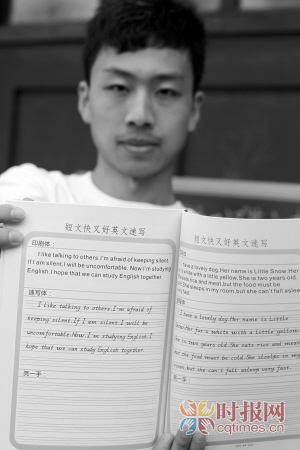 短文快又好英文速写
印刷体:
I like talking to others.I'm afraid of keeping silent.
If I am silent,I will be uncomfortable.Now I'm studying
English.I hope that we can study English together.
速写体:
I like talking to others.I'm afraid of
keeping silent.If I am silent I will be
uncomfortable.Now I'm studying English.I
hope that we can study English together.
亮一手:
短文快又好英文速写
have a lovely dog.Her name is Little Snow.Her
is white with a little yellow.She is two years old.
and meat,but the food must be
She sleeps in my room,but she can't fall asleep
I have a lovely dog.Her name is Little
Snow.Her fur is white with a little yellow
is two years old.She eats rice and meat
but the food must be cold.She sleeps in my
room,but she can't fall asleep very fast.
亮一手:
时报网
cqtimes.cn